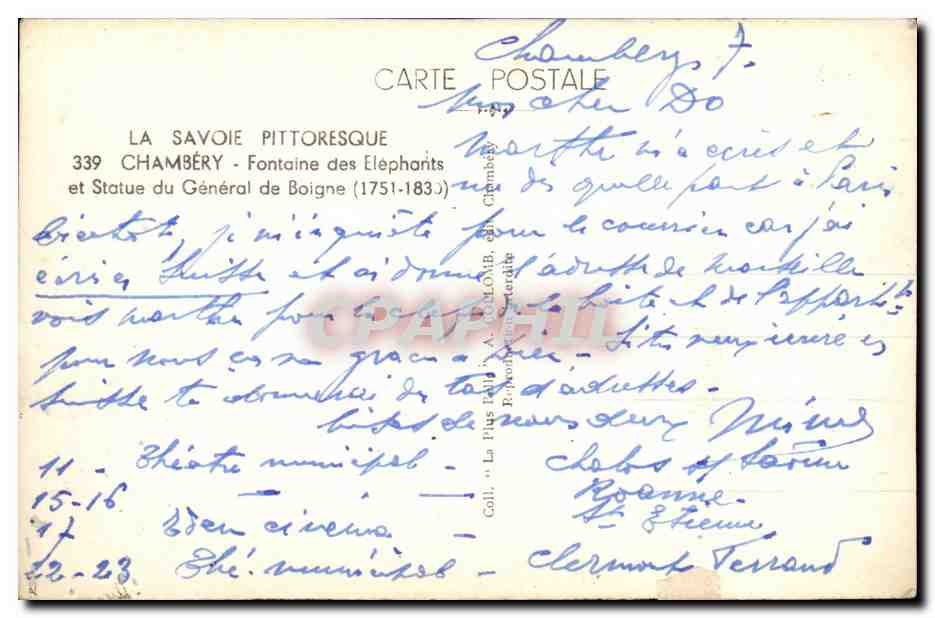 Chambery 7.
CARTE POSTALE
Mon cher Do
LA SAVOIE PITTORESQUE
339 CHAMBÉRY - Fontaine des Eléphants
et Statue du Général de Boigne (1751-1830)
Marthe m'a écrit et
me dit qu'elle part à Paris
bientôt, je m'inquiète pour le courrier car j'ai
écris Suisse et ai donné l'adresse de Marseille
vois Marthe pour la clef de la boite et de l'appart
pour nous ça va grace à Dieu - Si tu veux écrire en
Suisse te donnerai des tas d'adresses.
bises de nous deux
11 - Théatre municipal - Chalos s/ Saône
15-16 — — Roanne -
St Etienne
17 Eden cinema -
22-23 Thé. municipal - Clermont Ferrand
Coll. "La Plus Belle", A. COLLOMB, édit. Chambéry
Reproduction interdite
CPAPHIL